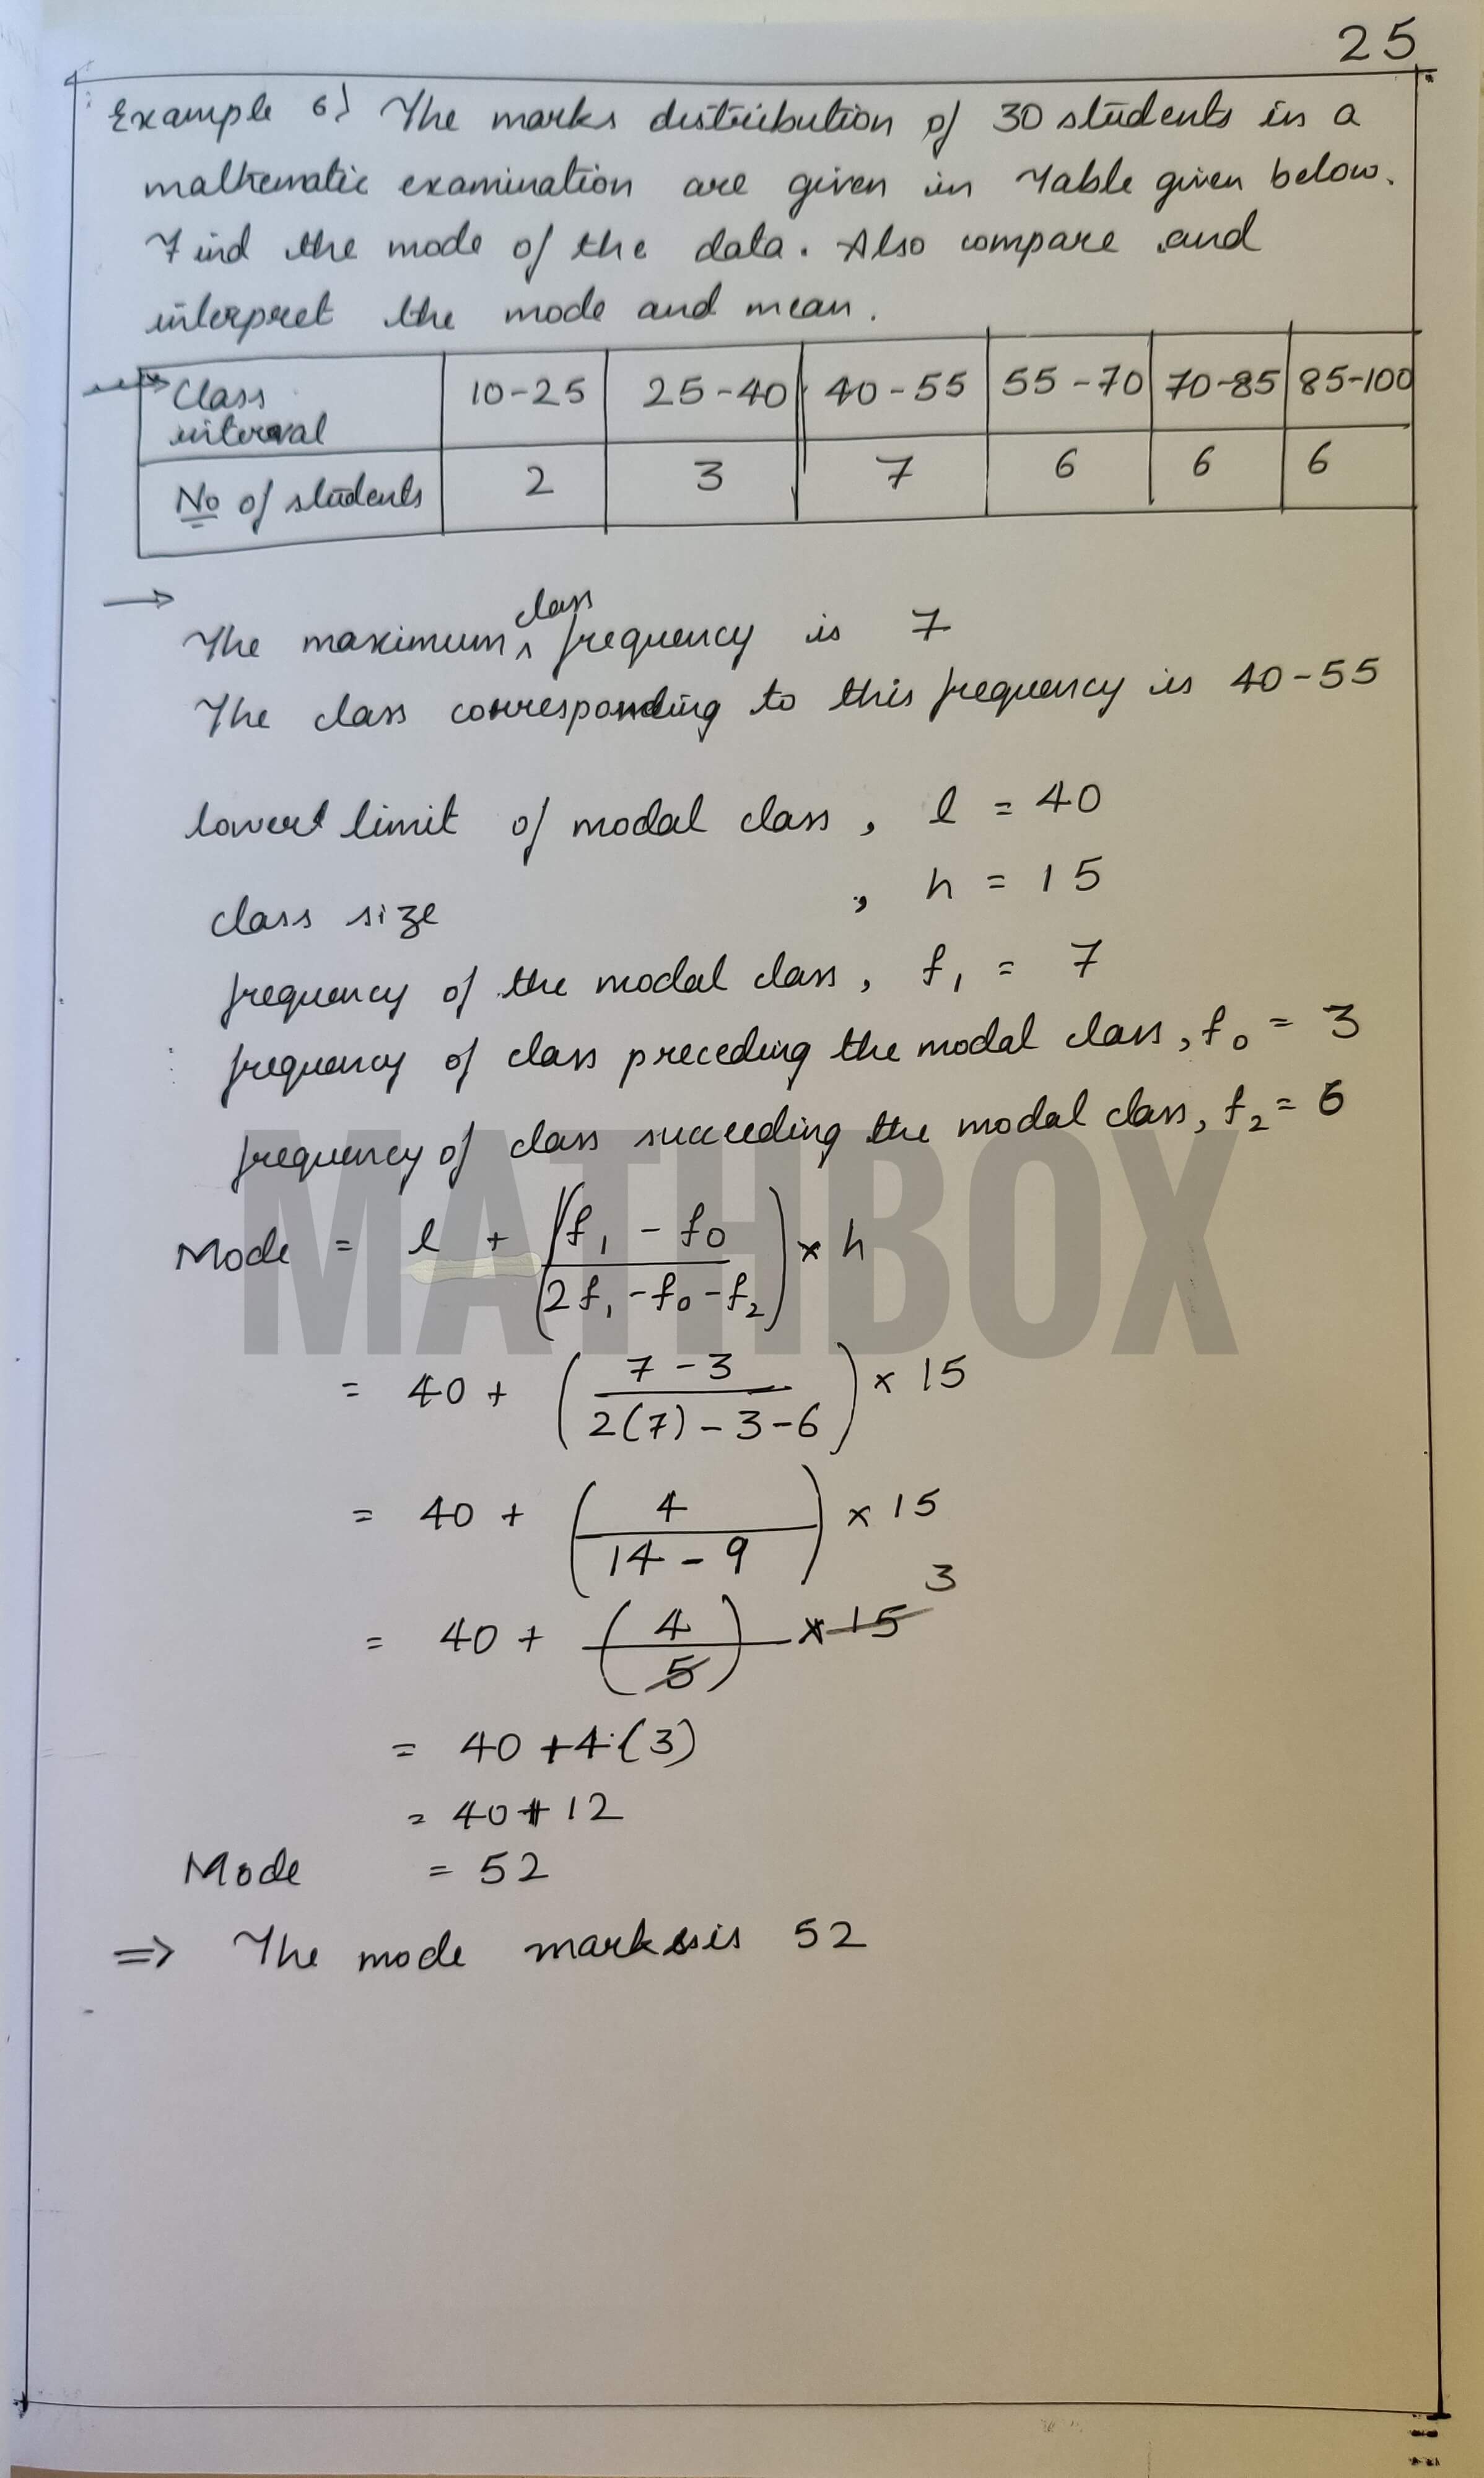 25
Example 6) The marks distribution of 30 students in a
mathematic examination are given in Table given below.
Find the mode of the data. Also compare and
interpret the mode and mean.
Class interval 10-25 25-40 40-55 55-70 70-85 85-100
No of students 2 3 7 6 6 6
→
The maximum class frequency is 7
The class corresponding to this frequency is 40-55
lower limit of modal class, l = 40
class size , h = 15
frequency of the modal class, f₁ = 7
frequency of class preceding the modal class, f₀ = 3
frequency of class succeeding the modal class, f₂ = 6
MATHBOX
Mode = l + (f₁ - f₀ / 2f₁ - f₀ - f₂) × h
= 40 + (7 - 3 / 2(7) - 3 - 6) × 15
= 40 + (4 / 14 - 9) × 15
= 40 + (4 / 5) × 15 3
= 40 + 4·(3)
= 40 + 12
Mode = 52
⇒ The mode marks is 52